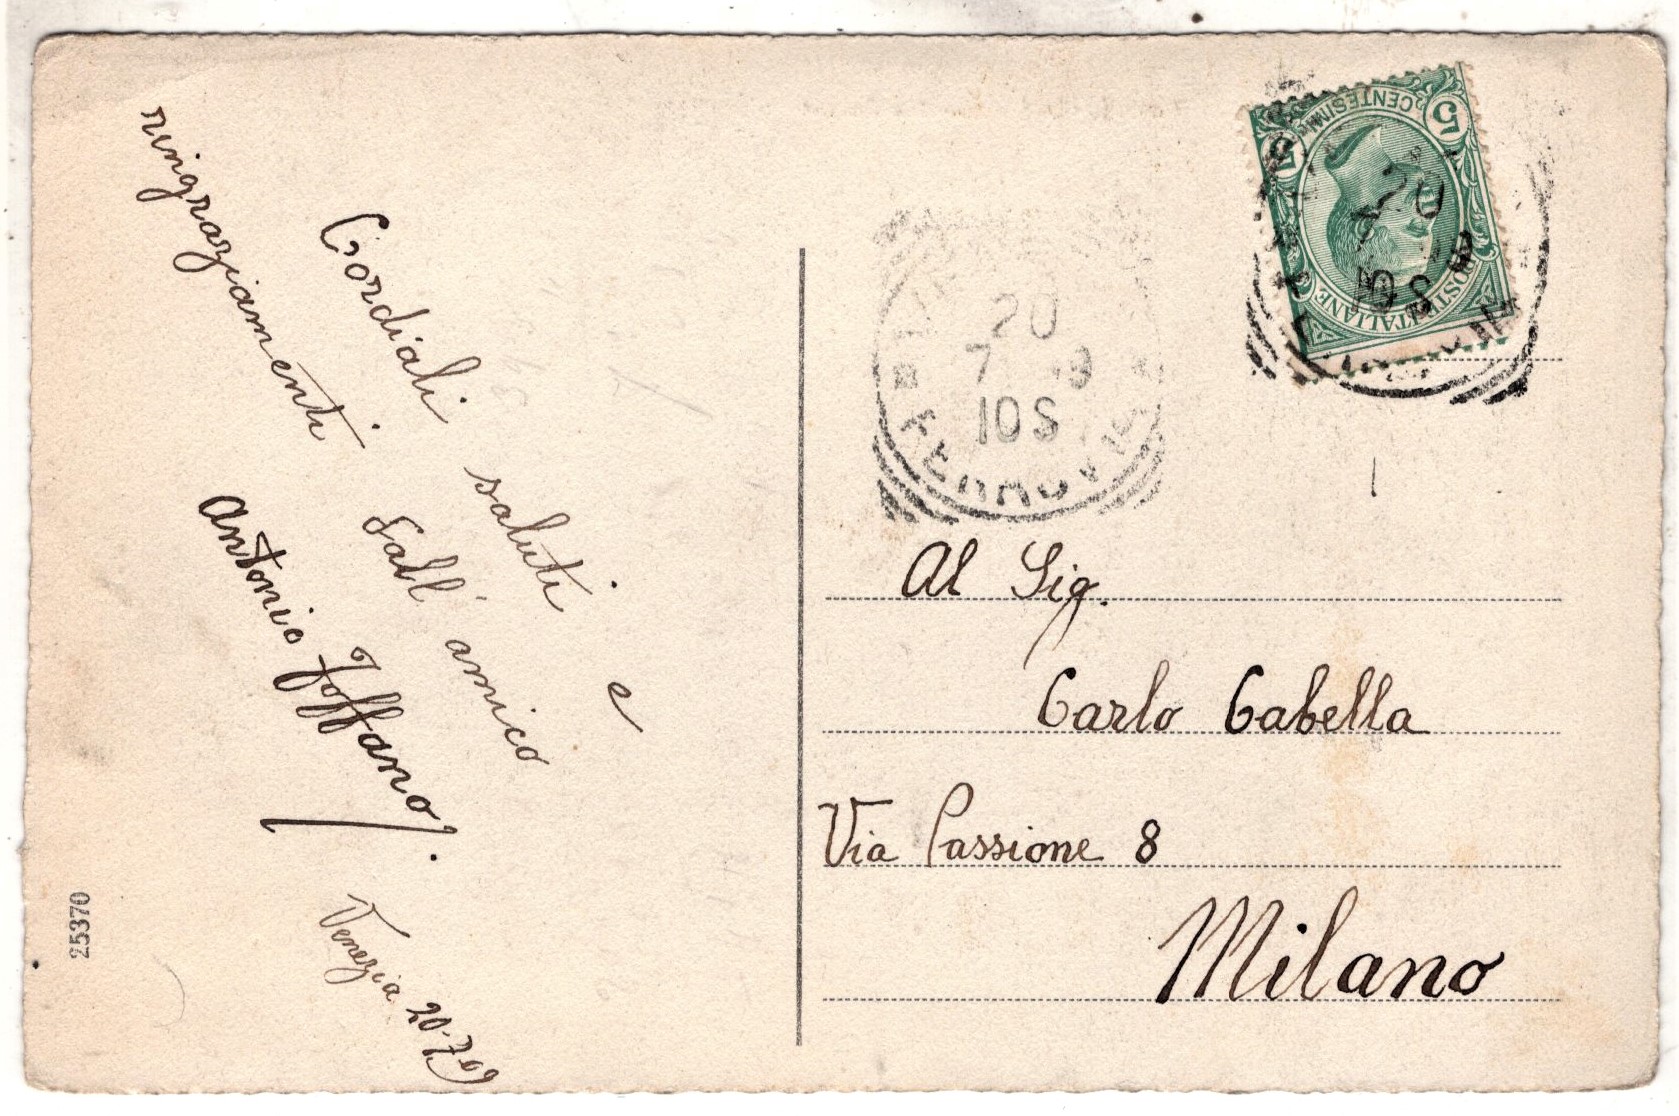 Cordiali saluti e
ringraziamenti dall' amico
Antonio Toffano
Venezia 20-7-09
25370
POSTE ITALIANE
CENTESIMI
5
20
7
10 S
20
7 9
10 S
Al Sig.
Carlo Cabella
Via Passione 8
Milano